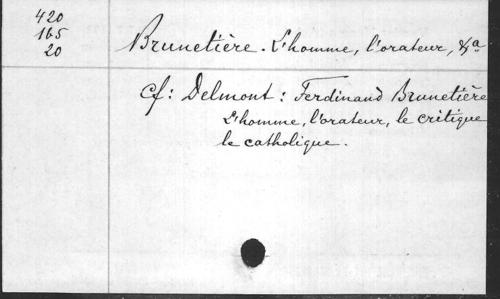 420
165
20
Brunetière. L'homme, l'orateur, &a
Cf: Delmont: Ferdinand Brunetière
L'homme, l'orateur, le critique
le catholique.